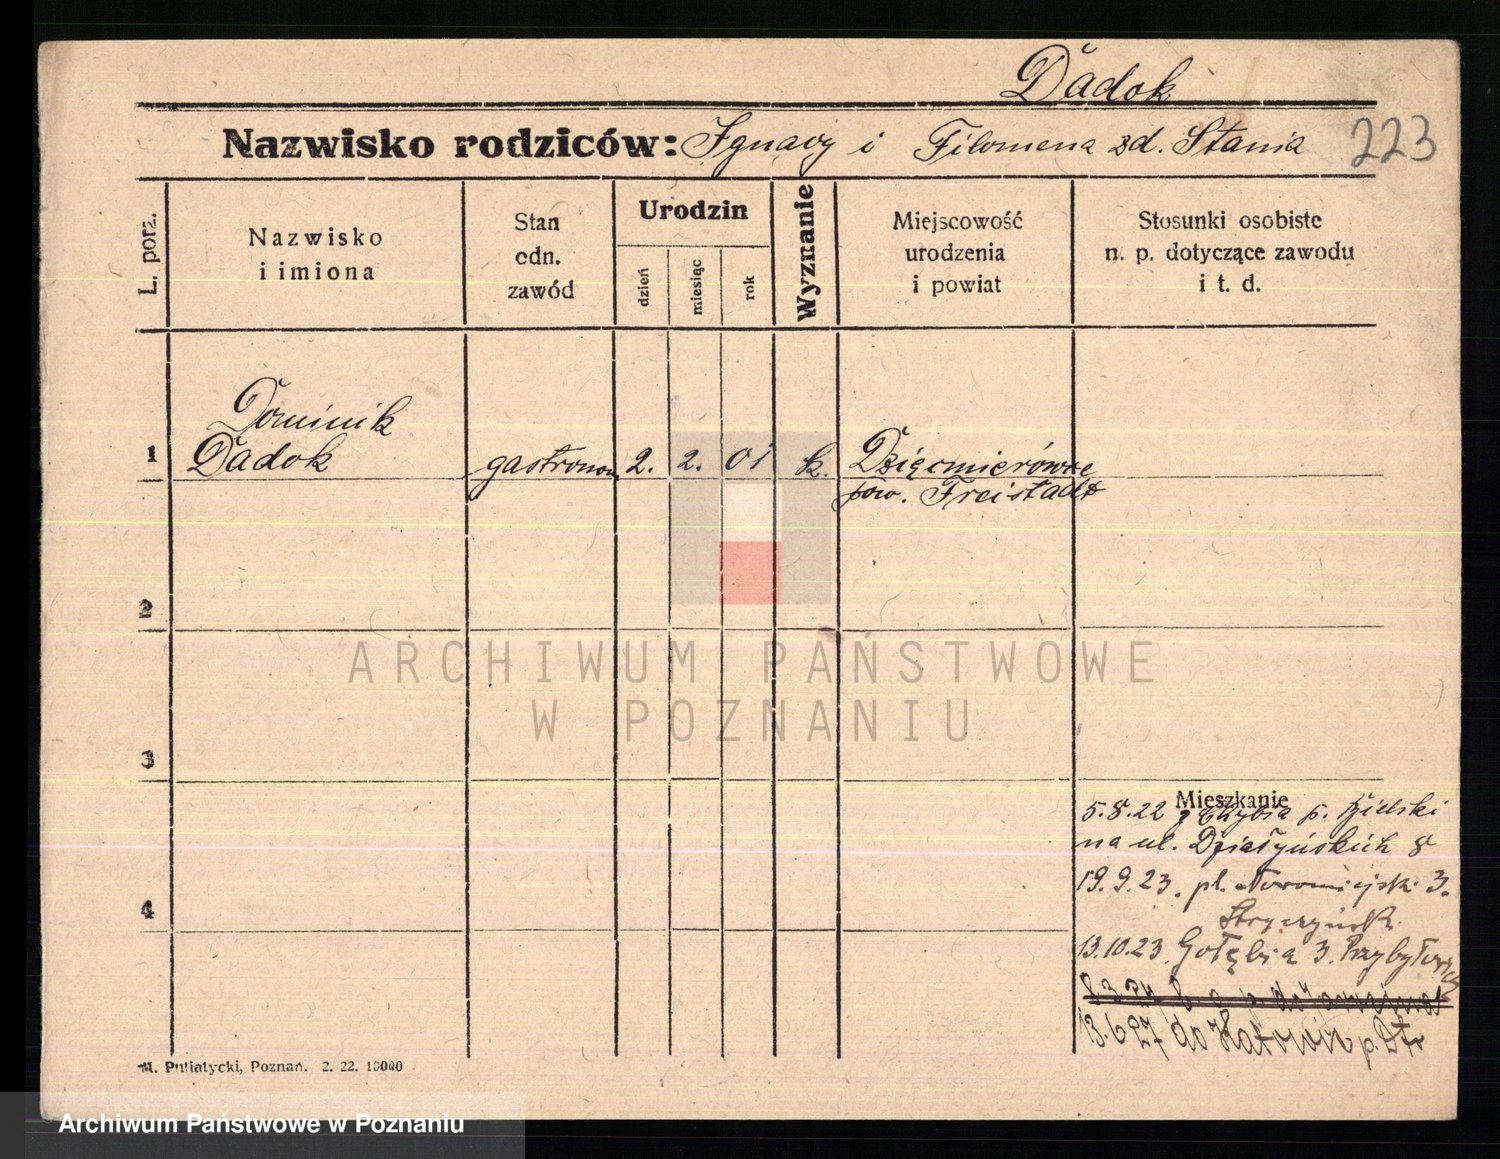 Dadok
Nazwisko rodziców: Ignacy i Filomena zd. Stania 223
L. porz.
Nazwisko
i imiona
Stan
odn.
zawód
Urodzin
dzień
miesiąc
rok
Wyznanie
Miejscowość
urodzenia
i powiat
Stosunki osobiste
n. p. dotyczące zawodu
i t. d.
Dominik
1 Dadok gastronom 2. 2. 01 k.
pow. Freistadt
2
ARCHIWUM PAŃSTWOWE
W POZNANIU
3
Mieszkanie
5.8.22 z Chybia p. Bielski
na ul. Działyńskich 8
19.9.23. pl. 3.
4
13.10.23. Gołębia 3.
13.6.27 do Katowic
M. Putiatycki, Poznań. 2. 22. 10000
Archiwum Państwowe w Poznaniu